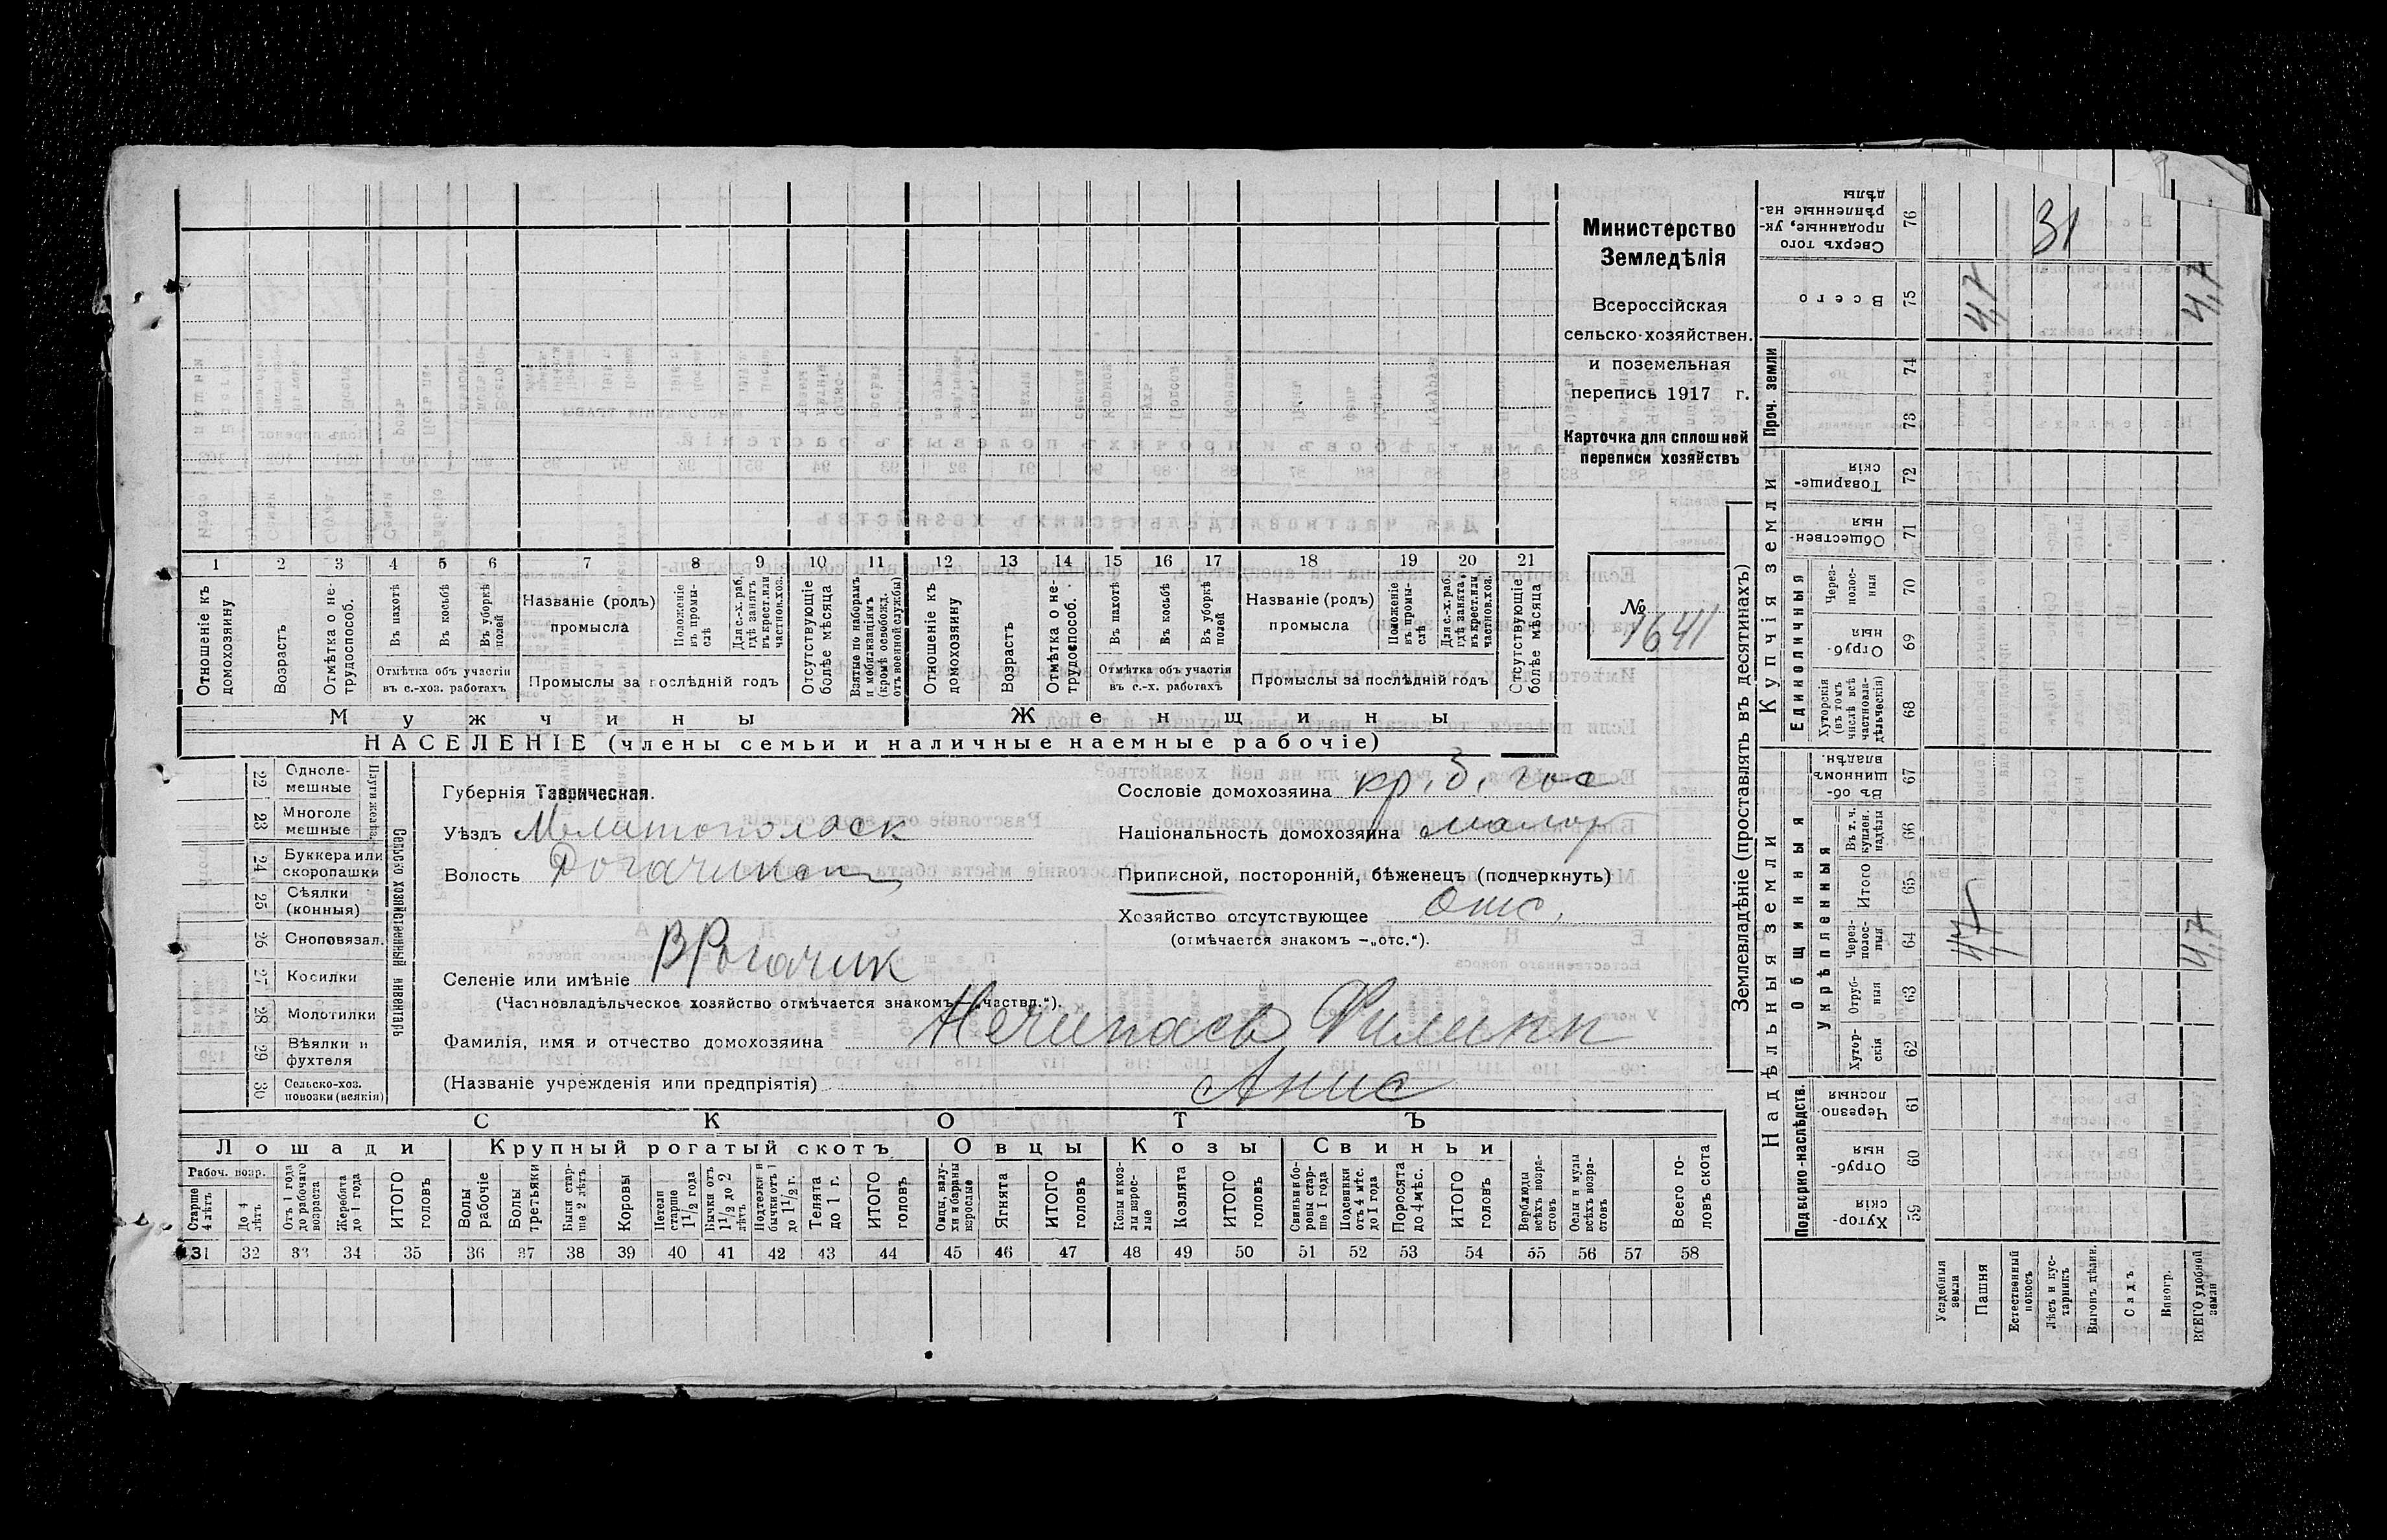 Министерство
Земледѣлія
Всероссійская
сельско-хозяйствен.
и поземельная
перепись 1917 г.
Карточка для сплошной
переписи хозяйствъ
№ 1641
1 2 3 4 5 6 7 8 9 10 11 12 13 14 15 16 17 18 19 20 21
Отношеніе къ домохозяину
Возрастъ
Отмѣтка о не-трудоспособ.
Въ пахотѣ
Въ косьбѣ
Въ уборкѣ полей
Отмѣтка объ участіи въ с.-хоз. работахъ
Названіе (родъ) промысла
Положеніе въ промы-слѣ
Для с.-х. раб. гдѣ занятъ въ крест. или частнов. хоз.
Промыслы за послѣдній годъ
Отсутствующіе болѣе мѣсяца
Взятые по наборамъ и мобилизаціямъ (кромѣ освобожд. отъ военной службы)
Отношеніе къ домохозяину
Возрастъ
Отмѣтка о не-трудоспособ.
Въ пахотѣ
Въ косьбѣ
Въ уборкѣ полей
Отмѣтка объ участіи въ с.-х. работахъ
Названіе (родъ) промысла
Положеніе въ промы-слѣ
Для с.-х. раб. гдѣ занята въ крест. или частнов. хоз.
Промыслы за послѣдній годъ
Отсутствующіе болѣе мѣсяца
Мужчины
Женщины
НАСЕЛЕНІЕ (члены семьи и наличные наемные рабочіе)
Сельско хозяйственный инвентарь
22 Одноле-мешные
23 Многоле мешные
24 Буккера или скоропашки
25 Сѣялки (конныя)
26 Сноповязал.
27 Косилки
28 Молотилки
29 Вѣялки и фухтеля
30 Сельско-хоз. повозки (всякія)
Губернія Таврическая.
Уѣздъ Мелитопольск
Волость
Селеніе или имѣніе В Рогачик
(Частновладѣльческое хозяйство отмѣчается знакомъ—„частвл.“).
Фамилія, имя и отчество домохозяина
(Названіе учрежденія или предпріятія) Анис
Сословіе домохозяина кр. б. гос
Національность домохозяина малор
Приписной, посторонній, бѣженецъ (подчеркнуть)
Хозяйство отсутствующее Отс.
(отмѣчается знакомъ —„отс.“).
СКОТЪ
Лошади Крупный рогатый скотъ Овцы Козы Свиньи
Рабоч. возр.
Старше 4 лѣтъ
До 4 лѣтъ
Отъ 1 года до рабочаго возраста
Жеребята до 1 года
ИТОГО головъ
Волы рабочіе
Волы третьяки
Быки стар-ше 2 лѣтъ
Коровы
Нетели старше 1 1/2 года
Бычки отъ 1 1/2 до 2 лѣтъ
Подтелки и бычки отъ 1 до 1 1/2 г.
Телята до 1 г.
ИТОГО головъ
Овцы, валу-хи и бараны взрослые
Ягнята
ИТОГО головъ
Козы и коз-лы взрос-лые
Козлята
ИТОГО головъ
Свиньи и бо-ровы стар-ше 1 года
Подсвинки отъ 4 мѣс. до 1 года
Поросята до 4 мѣс.
ИТОГО головъ
Верблюды всѣхъ возра-стовъ
Ослы и мулы всѣхъ возра-стовъ
Всего го-ловъ скота
31 32 33 34 35 36 37 38 39 40 41 42 43 44 45 46 47 48 49 50 51 52 53 54 55 56 57 58
Землевладѣніе (проставлять въ десятинахъ)
Надѣльныя земли
Купчія земли
Проч. земли
Подворно-наслѣдств.
Общинныя
Укрѣпленныя
Единоличныя
Хутор-скія 59
Отруб-ныя 60
Черезпо-лосныя 61
Хутор-скія 62
Отруб-ныя 63
Через-полос-ныя 64
Итого 65
Въ т. ч. куплен. надѣлы 66
Въ об-щинномъ владѣн. 67
Хуторскія (въ томъ числѣ всѣ частновла-дѣльческія) 68
Отруб-ныя 69
Через-полос-ныя 70
Обществен-ныя 71
Товарище-скія 72
73
74
Всего 75
Сверхъ того проданные, ук-рѣпленные на-дѣлы 76
Усадебныя земли
Пашня
Естественный покосъ
Лѣсъ и кус-тарникъ
Выгонъ дѣлин.
Садъ
Виногр.
ВСЕГО удобной земли
31
4,7
4,7
4,7
4,7